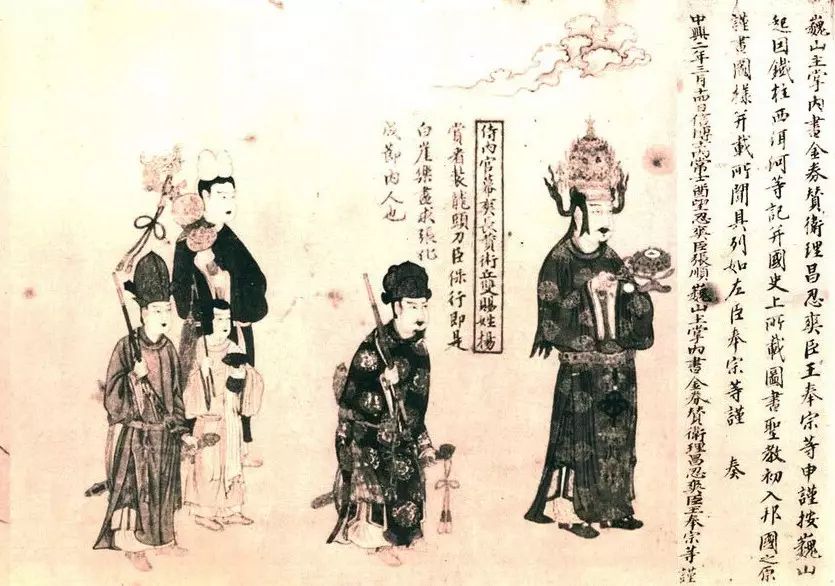 巍山主掌內書金券贊衛理昌忍爽臣王奉宗等申謹按巍山
起因鐵柱西洱河等記并國史上所載圖書聖教初入邦國之原
謹畫圖樣并載所聞具列如左臣奉宗等謹 奏
中興二年三月十四日信博士內常士酋望忍爽臣張順巍山主掌內書金券贊衛理昌忍爽臣王奉宗等謹
侍內官幕爽長贊術丘雙賜姓楊
賞者裝龍頭刀臣保行即是
白崖樂盡求張化
成節內人也